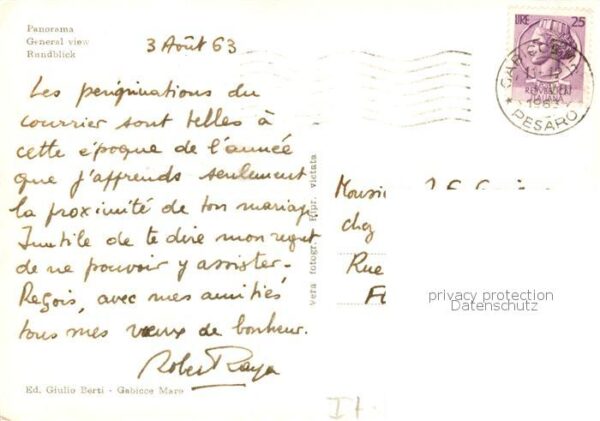 Panorama
General view
Rundblick
3 Août 63
LIRE 25
GABICCE
1963
PESARO
REPUBBLICA
ITALIANA
Les pérégrinations du
courrier sont telles à
cette époque de l'année
que j'apprends seulement
la proximité de ton mariage
Inutile de te dire mon regret
de ne pouvoir y assister-
Reçois, avec mes amitiés
tous mes vœux de bonheur.
Robert
Ed. Giulio Berti - Gabicce Mare
vera fotogr. Ripr. vietata
Monsi
chez
Rue
privacy protection
Datenschutz
It.